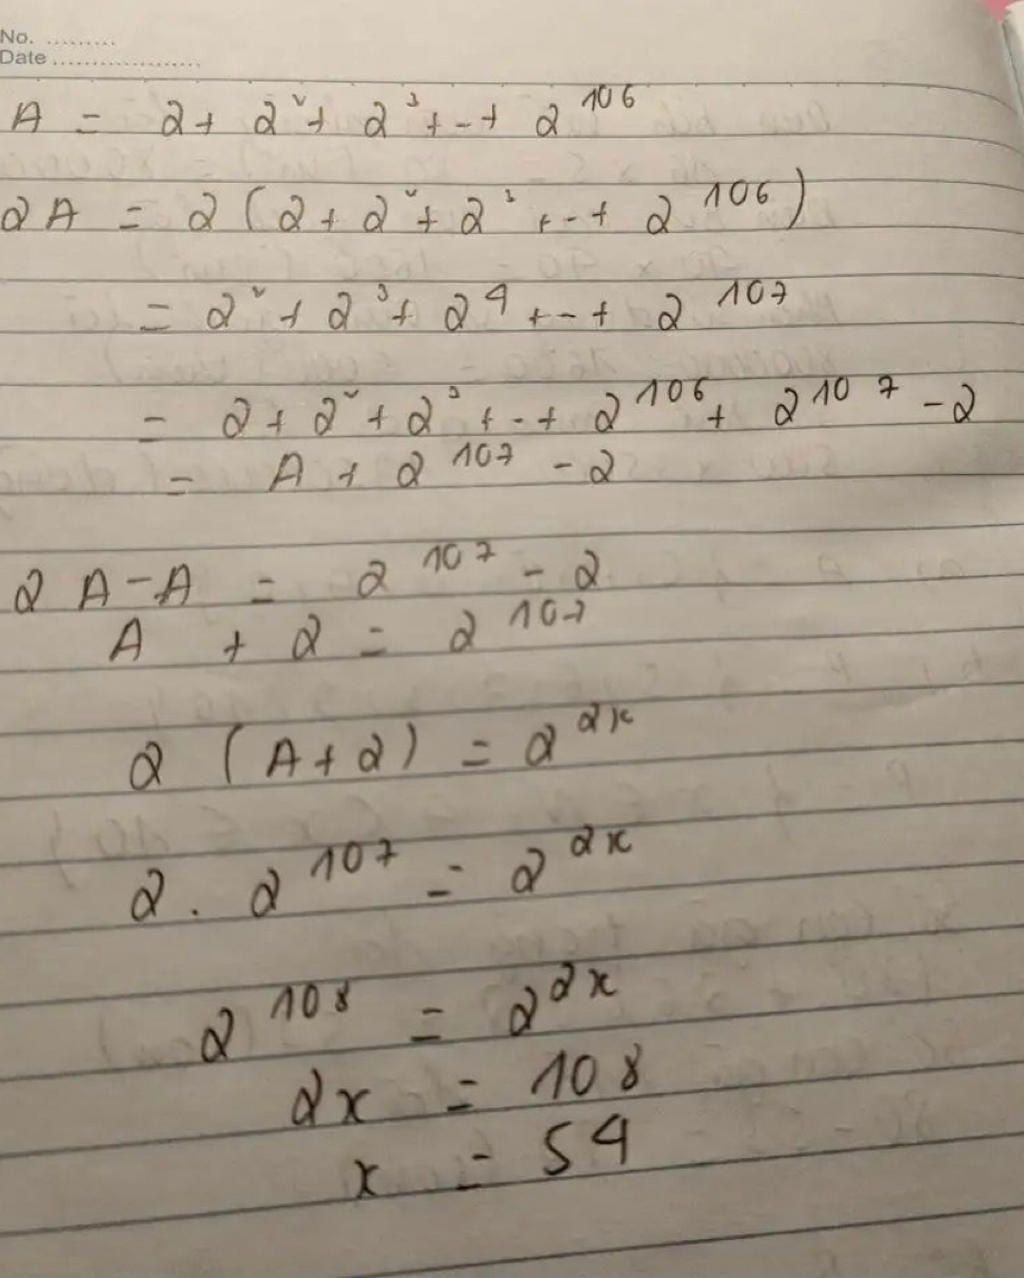 No. .........
Date ...................
A = 2 + 2² + 2³ + -- + 2¹⁰⁶
2A = 2 (2 + 2² + 2³ + -- + 2¹⁰⁶)
= 2² + 2³ + 2⁴ + -- + 2¹⁰⁷
= 2 + 2² + 2³ + -- + 2¹⁰⁶ + 2¹⁰⁷ - 2
= A + 2¹⁰⁷ - 2
2 A - A = 2¹⁰⁷ - 2
A + 2 = 2¹⁰⁷
2 (A + 2) = 2²ˣ
2 . 2¹⁰⁷ = 2²ˣ
2¹⁰⁸ = 2²ˣ
2x = 108
x = 54